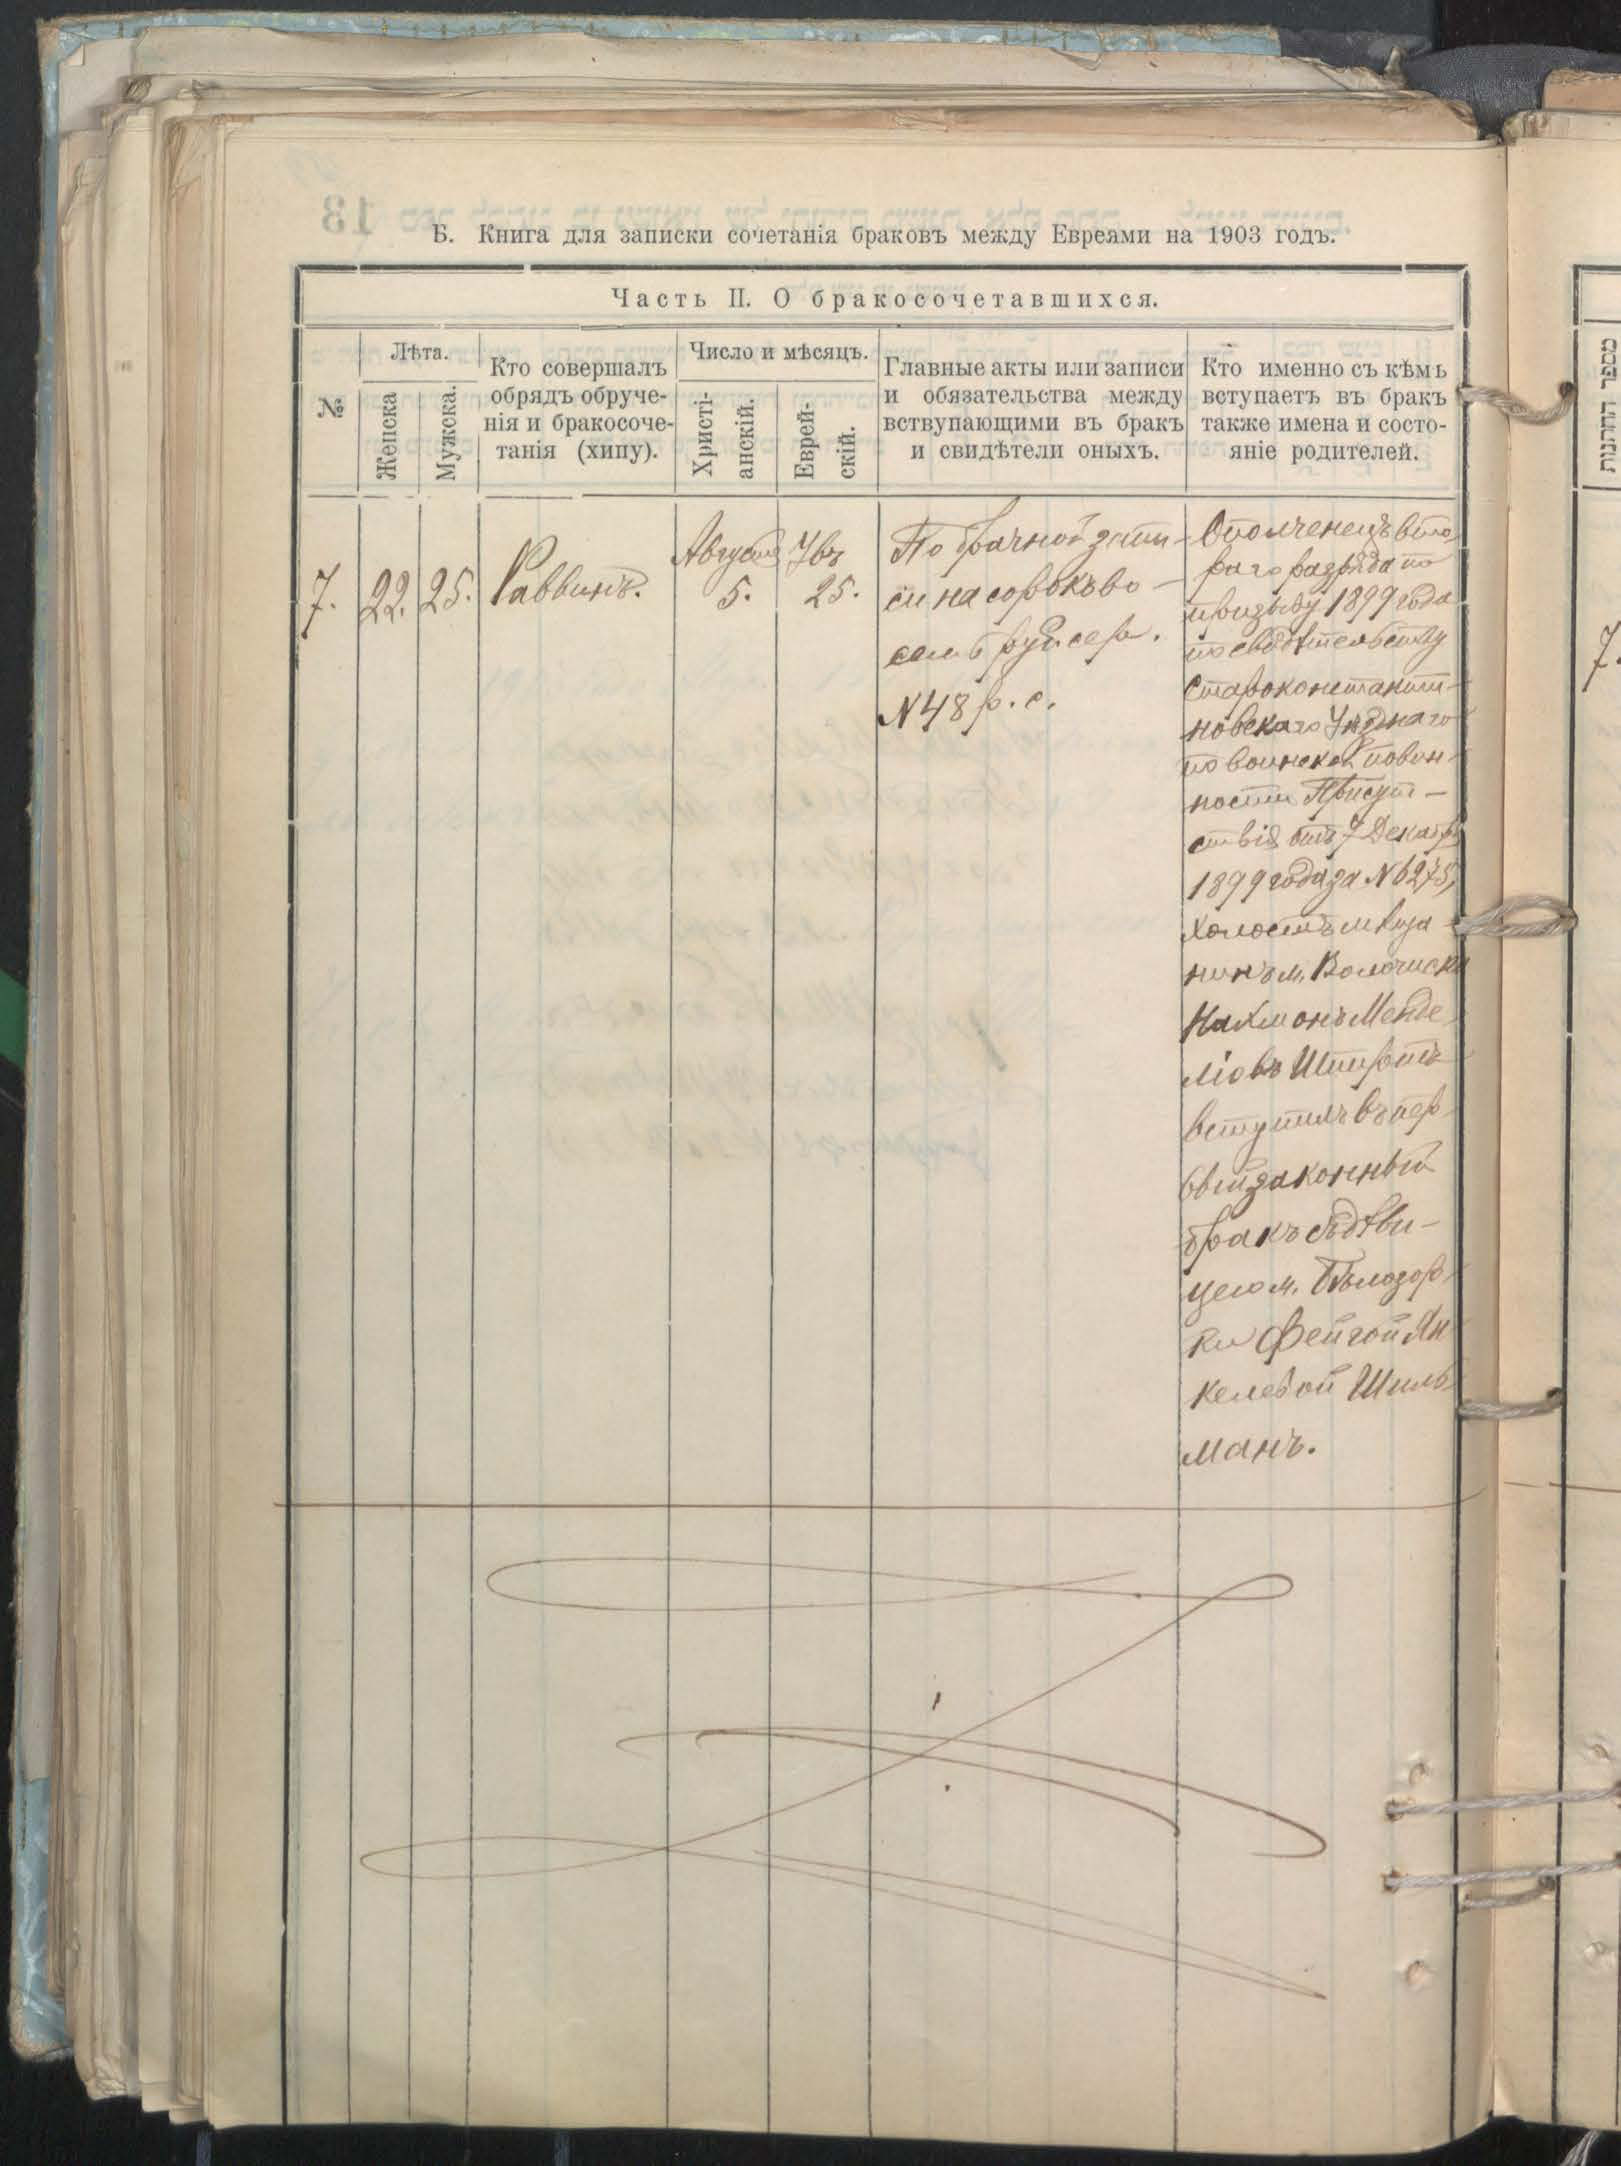 Б. Книга для записки сочетанія браковъ между Евреями на 1903 годъ.
Часть II. О бракосочетавшихся.
№
Лѣта.
Женска
Мужска.
Кто совершалъ
обрядъ обруче-
нія и бракосоче-
танія (хипу).
Число и мѣсяцъ.
Христі-
анскій.
Еврей-
скій.
Главные акты или записи
и обязательства между
вствупающими въ бракъ
и свидѣтели оныхъ.
Кто именно съ кѣмъ
вступаетъ въ бракъ
также имена и состо-
яніе родителей.
7.
22.
25.
Раввинъ.
Августа
5.
25.
По брачной запи-
си на сорокъ во-
семь руб. сер.
№ 48 р. с.
Ополченецъ вто
раго разряда по
призыву 1899 года
по свидѣтельству
Староконстанти-
новскаго Уѣзднаго
по воинской повин-
ности Присут-
ствія отъ 7 Декабр
1899 года за № 6275,
холостъ мѣща-
нинъ м. Волочиска
Нахманъ Менде
ліовъ
вступилъ въ пер-
вый законный
бракъ съ дѣви-
цею м. Бѣлозор-
ки Фейгой Ян
келевой Шиль-
манъ.
מספר החתנות
7.
13